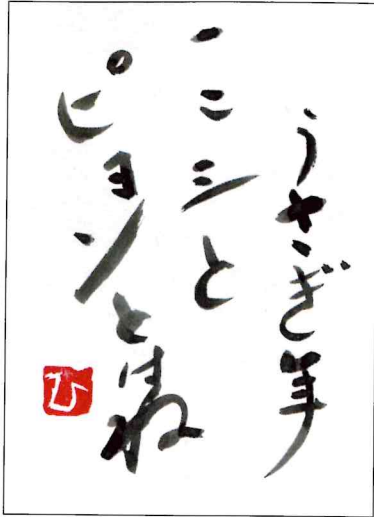 うさぎ年
一二三と
ピョンとはね
ひ